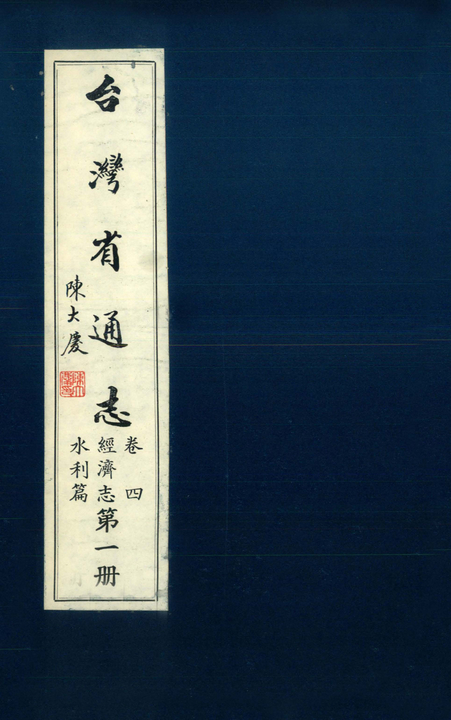 台灣省通志
陳大慶
卷四
經濟志
水利篇
第一册